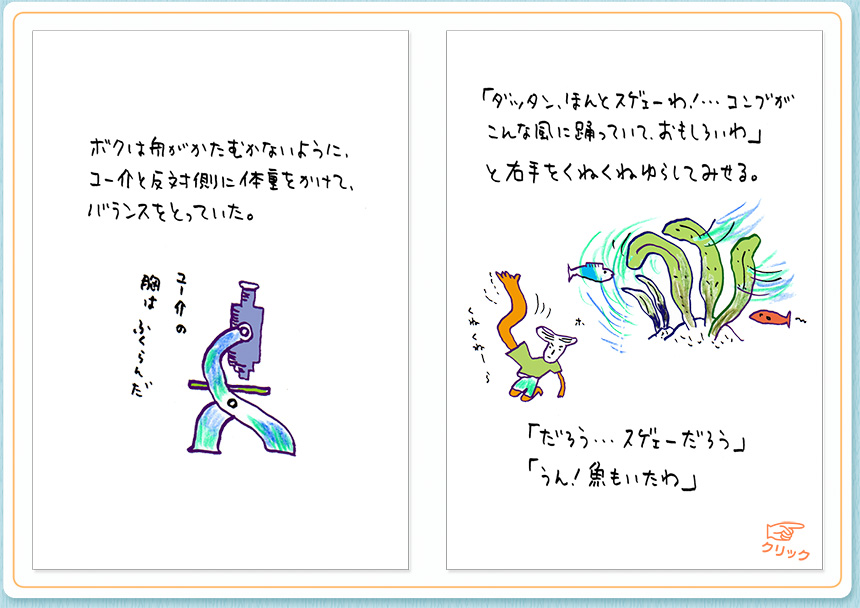 ボクは舟がかたむかないように、
ユー介と反対側に体重をかけて、
バランスをとっていた。
ユー介の
胸は ふくらんだ
「ダッタン、ほんとスゲェーわ!…コンブが
こんな風に踊っていて、おもしろいわ」
と右手をくねくねゆらしてみせる。
くねくねー
ホ
「だろう…スゲェーだろう」
「うん!魚もいたわ」
クリック